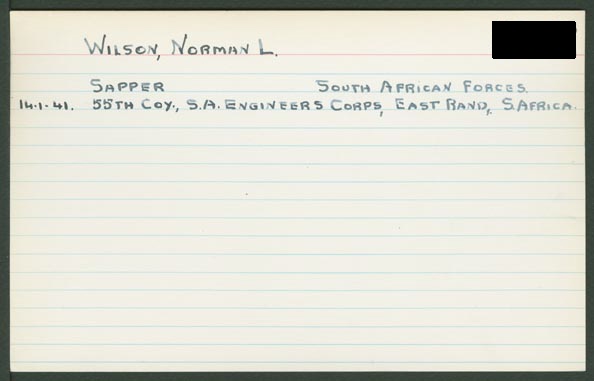 WILSON, NORMAN L.
SAPPER SOUTH AFRICAN FORCES.
14.1.41. 55TH COY., S.A. ENGINEERS CORPS, EAST RAND, S.AFRICA.